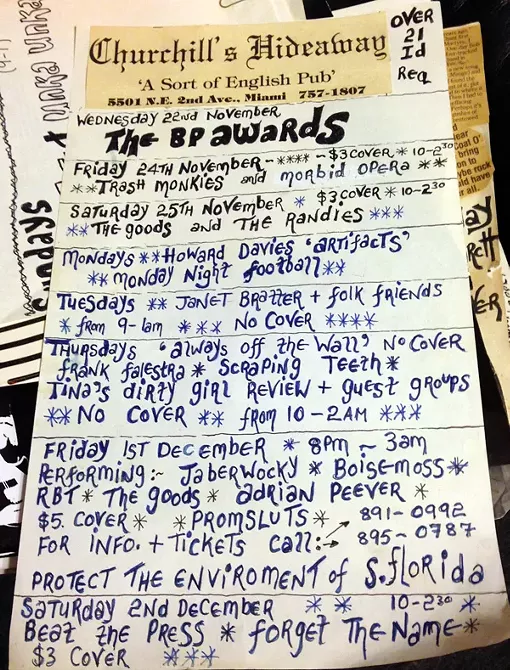 Churchill's Hideaway
'A Sort of English Pub'
5501 N.E. 2nd Ave., Miami 757-1807
OVER
21
Id
Req
WEDNESDAY 22ND NOVEMBER
THE BP AWARDS
FRIDAY 24TH NOVEMBER - **** - $3 COVER * 10-2³⁰
**TRASH MONKIES and MORBID OPERA **
SATURDAY 25TH NOVEMBER * $3 COVER * 10-2³⁰
**THE GOODS and THE RANDIES ***
MONDAYS **HOWARD DAVIES 'ARTIFACTS'
** MONDAY NIGHT FOOTBALL**
TUESDAYS ** JANET BRATTER + FOLK FRIENDS
* from 9-1am *** NO COVER ****
THURSDAYS 'ALWAYS OFF THE WALL' NO COVER
FRANK FALESTRA * SCRAPING TEETH *
TINA'S DIRTY GIRL REVIEW + GUEST GROUPS
** NO COVER ** FROM 10-2AM ***
FRIDAY 1ST DECEMBER * 8PM ~ 3am
PERFORMING:~ JABERWOCKY * BOISEMOSS *
RBT * THE GOODS * ADRIAN PEEVER *
$5. COVER * * PROMSLUTS * → 891-0992
FOR INFO. + TICKETS CALL: → 895-0787
PROTECT THE ENVIROMENT of S.FLORIDA
SATURDAY 2ND DECEMBER * * 10-2³⁰ *
BEAT THE PRESS * FORGET THE NAME *
$3 COVER ***
Sundays